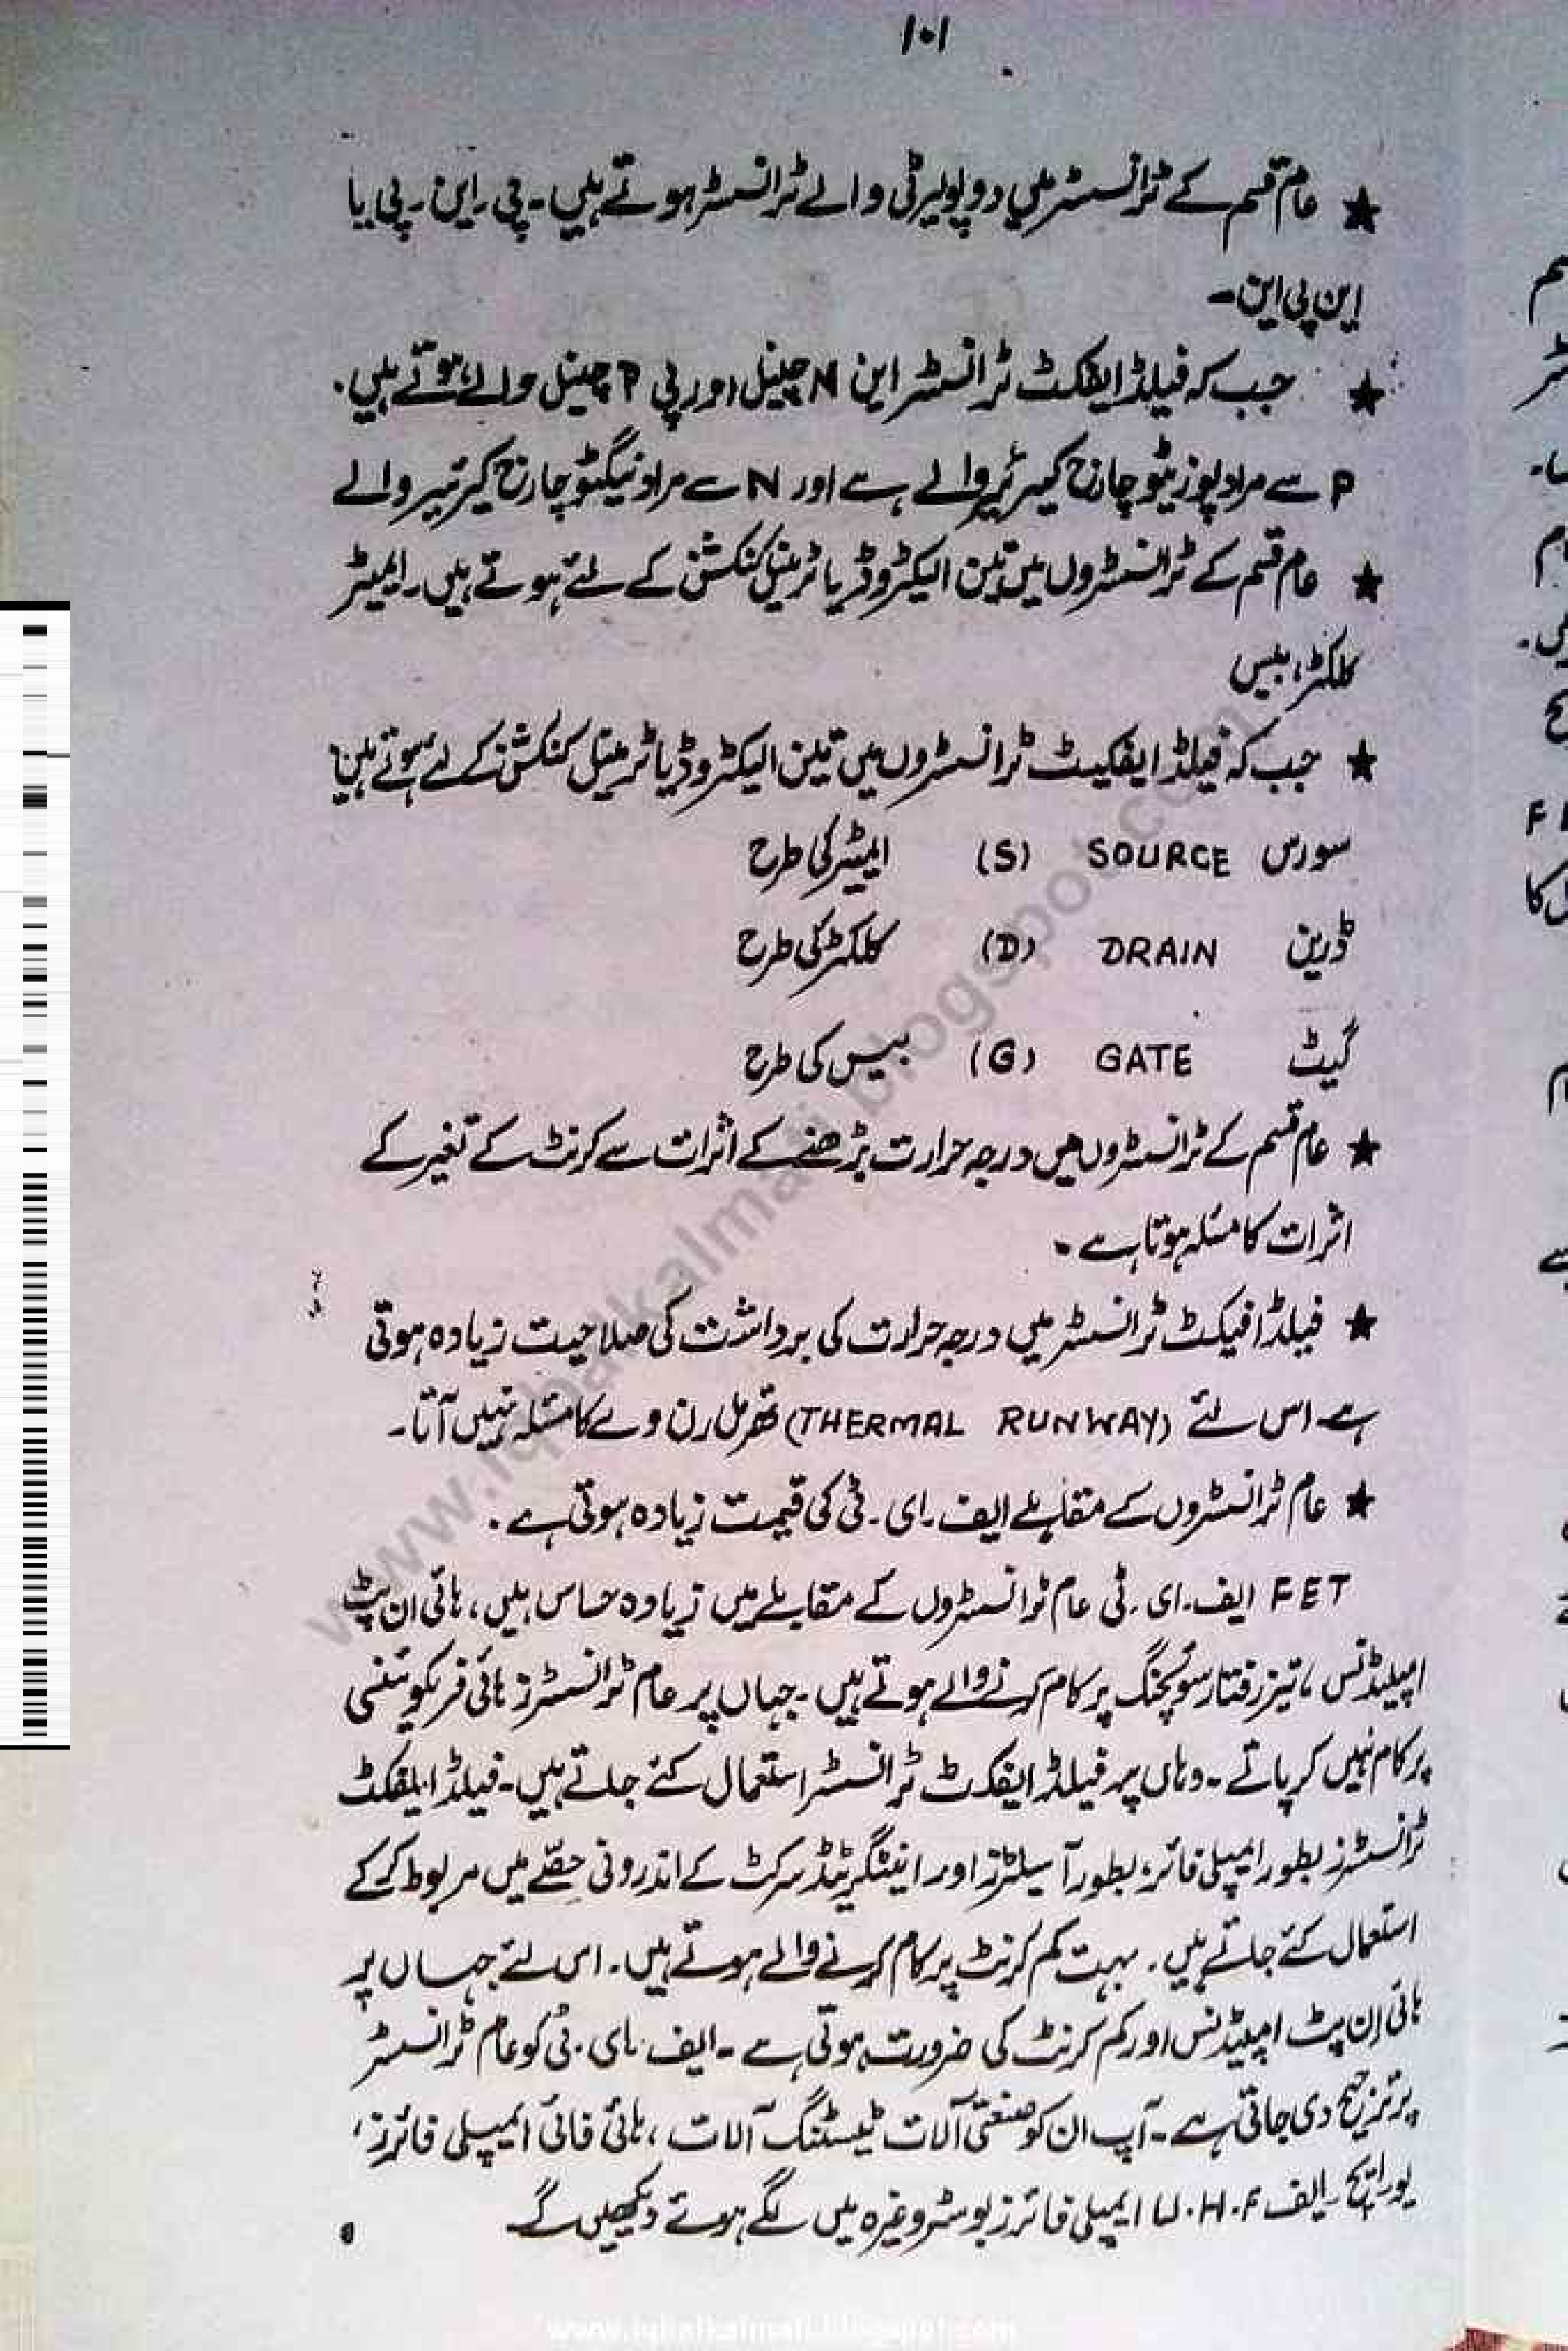 ۱۰۱
★ عام قسم کے ٹرانسسٹر میں دو پولیرٹی والے ٹرانسسٹر ہوتے ہیں۔ پی۔این۔پی یا
این پی این۔
★ جب کہ فیلڈ ایفکٹ ٹرانسسٹر این N چینل اور پی P چینل والے ہوتے ہیں۔
P سے مراد پوزیٹو چارج کیرئیر والے ہے اور N سے مراد نیگٹو چارج کیرئیر والے
★ عام قسم کے ٹرانسسٹروں میں تین الیکٹروڈ یا ٹرمینل کنکشن کے لئے ہوتے ہیں۔ ایمیٹر
کلکٹر، بیس
★ جب کہ فیلڈ ایفکیٹ ٹرانسسٹروں میں تین الیکٹروڈ یا ٹرمینل کنکشن کے لئے ہوتے ہیں
سورس SOURCE (S) ایمیٹر کی طرح
ڈرین DRAIN (D) کلکٹر کی طرح
گیٹ GATE (G) بیس کی طرح
★ عام قسم کے ٹرانسسٹروں میں درجہ حرارت بڑھنے کے اثرات سے کرنٹ کے تغیر کے
اثرات کا مسئلہ ہوتا ہے۔
★ فیلڈ افیکٹ ٹرانسسٹر میں درجہ حرارت کی برداشت کی صلاحیت زیادہ ہوتی
ہے اس لئے (THERMAL RUNWAY) تھرمل رن وے کا مسئلہ نہیں آتا۔
★ عام ٹرانسسٹروں کے مقابلے ایف۔ای۔ٹی کی قیمت زیادہ ہوتی ہے۔
FET ایف۔ای۔ٹی عام ٹرانسسٹروں کے مقابلے میں زیادہ حساس ہیں، ہائی ان پٹ
امپیڈنس، تیز رفتار سوئچنگ پر کام کرنے والے ہوتے ہیں۔ جہاں پر عام ٹرانسسٹرز ہائی فریکوئنسی
پر کام نہیں کر پاتے۔ وہاں پر فیلڈ ایفکٹ ٹرانسسٹر استعمال کئے جاتے ہیں۔ فیلڈ ایفکٹ
ٹرانسسٹرز بطور ایمپلی فائر، بطور آسیلیٹر اور اینٹگریٹڈ سرکٹ کے اندرونی حصّے میں مربوط کر کے
استعمال کئے جاتے ہیں۔ بہت کم کرنٹ پر کام کرنے والے ہوتے ہیں۔ اس لئے جہاں پر
ہائی اِن پٹ امپیڈنس اور کم کرنٹ کی ضرورت ہوتی ہے۔ ایف۔ای۔ٹی کو عام ٹرانسسٹر
پر ترجیح دی جاتی ہے۔ آپ ان کو صنعتی آلات ٹیسٹنگ آلات، ہائی فائی ایمپلی فائرز،
یو۔ایچ۔ایف U.H.F ایمپلی فائرز بوسٹر وغیرہ میں لگے ہوئے دیکھیں گے
www.iqbalkalmati.blogspot.com
www.iqbalkalmati.blogspot.com